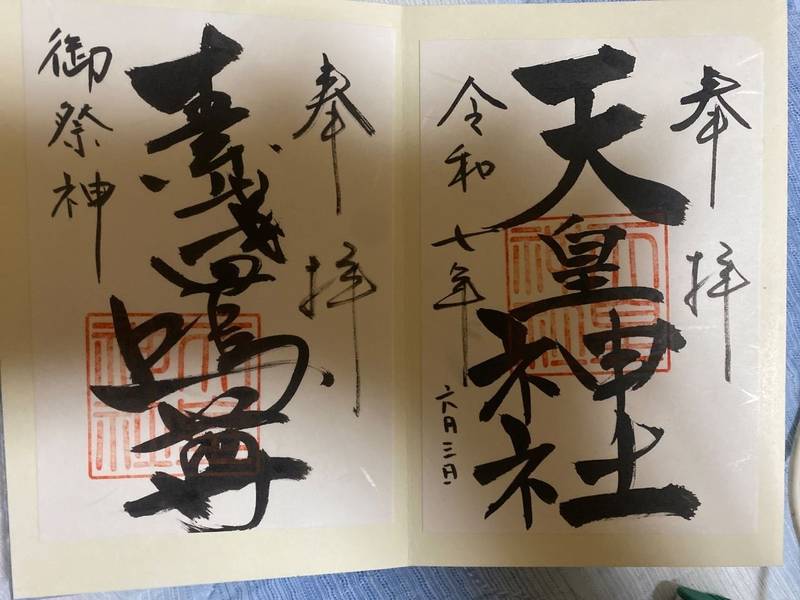 奉拝
天皇神社
令和七年六月三日
奉拝
素戔嗚尊
御祭神